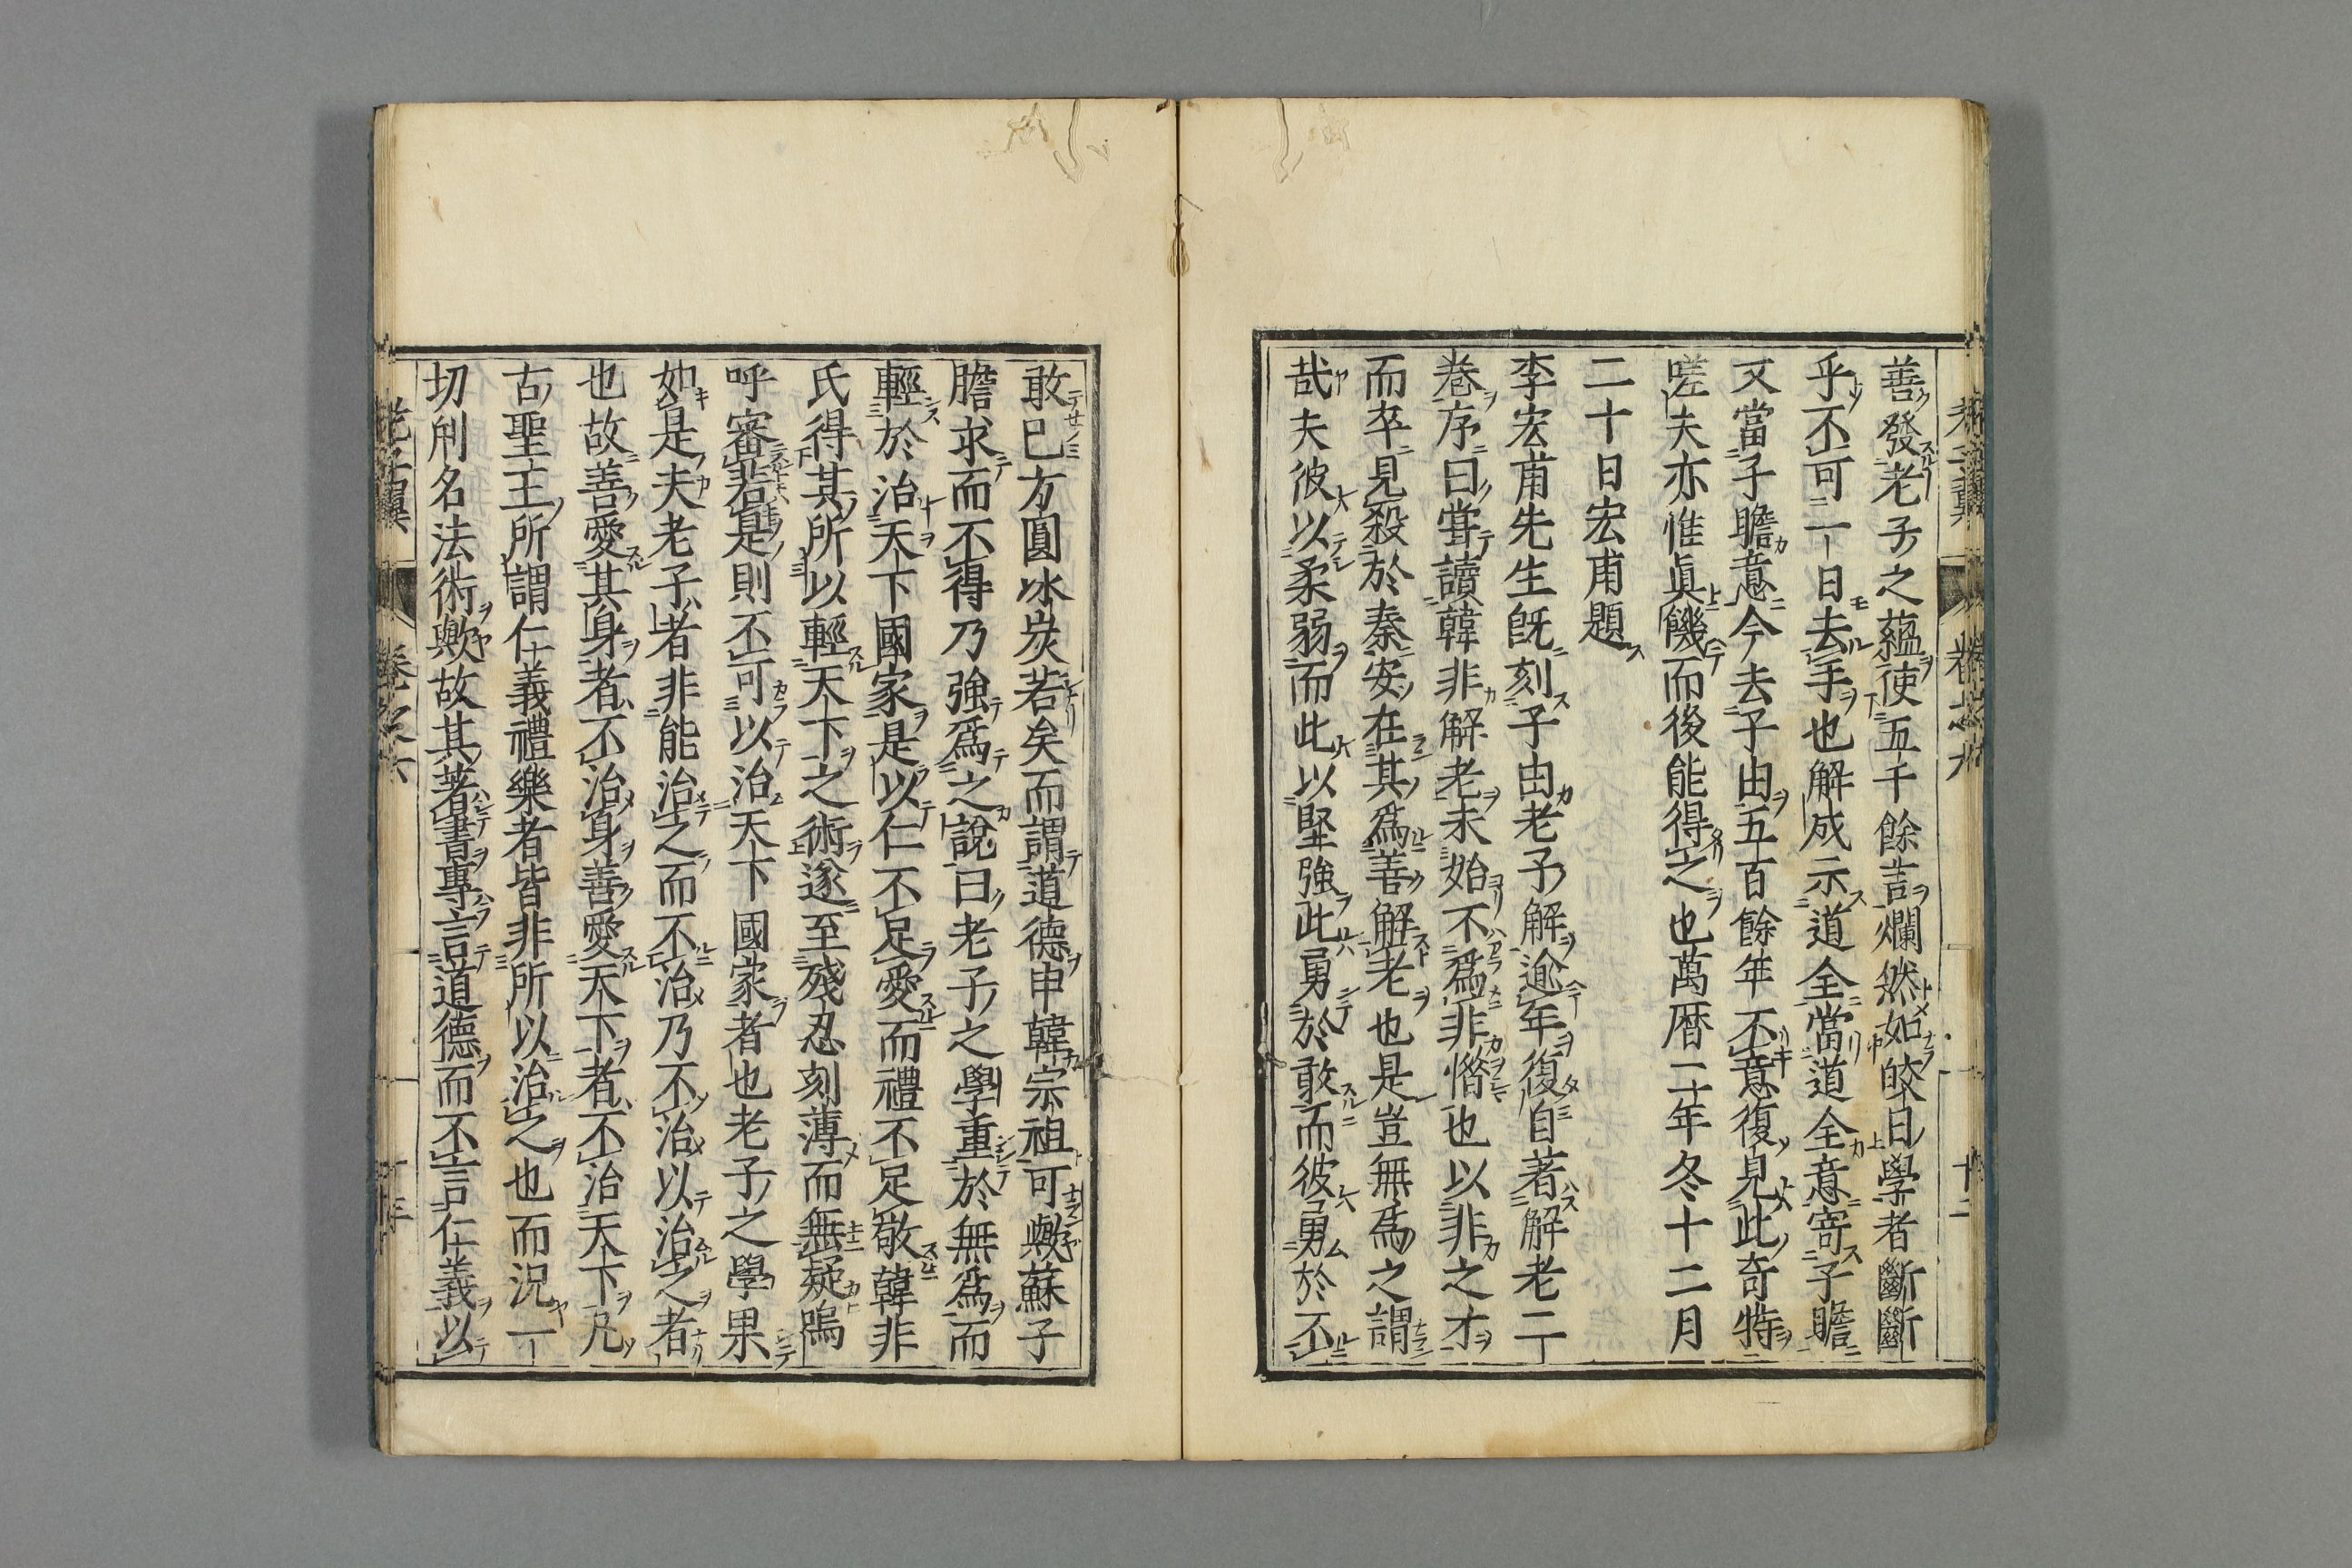 善發老子之蘊使五千餘言爛然如皎日學者斷斷
乎不可一日去手也解成示道全當道全意寄子瞻
又當子瞻意今去子由五百餘年不意復見此奇特
嗟夫亦惟眞饑而後能得之也萬曆二年冬十二月
二十日宏甫題
李宏甫先生旣刻子由老子解逾年復自著解老二
卷序曰嘗讀韓非解老未始不爲非惜也以非之才
而卒見殺於秦安在其爲善解老也是豈無爲之謂
哉夫彼以柔弱而此以堅強此勇於敢而彼勇於不
敢巳方圓冰炭若矣而謂道德申韓宗祖可歟蘇子
瞻求而不得乃強爲之說曰老子之學重於無爲而
輕於治天下國家是以仁不足愛而禮不足敬韓非
氏得其所以輕天下之術遂至殘忍刻薄而無疑嗚
呼審若是則不可以治天下國家者也老子之學果
如是夫老子者非能治之而不治乃不治以治之者
也故善愛其身者不治身善愛天下者不治天下凡
古聖王所謂仁義禮樂者皆非所以治之也而況一
切刑名法術歟故其著書專言道德而不言仁義以
老子翼
卷之六